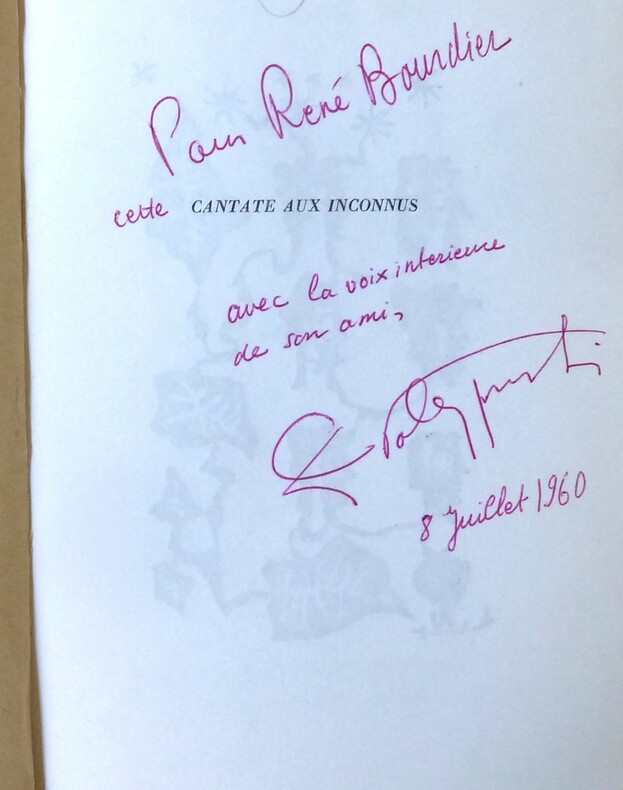 Pour René Bourdier
cette CANTATE AUX INCONNUS
avec la voix interieure
de son ami,
8 Juillet 1960